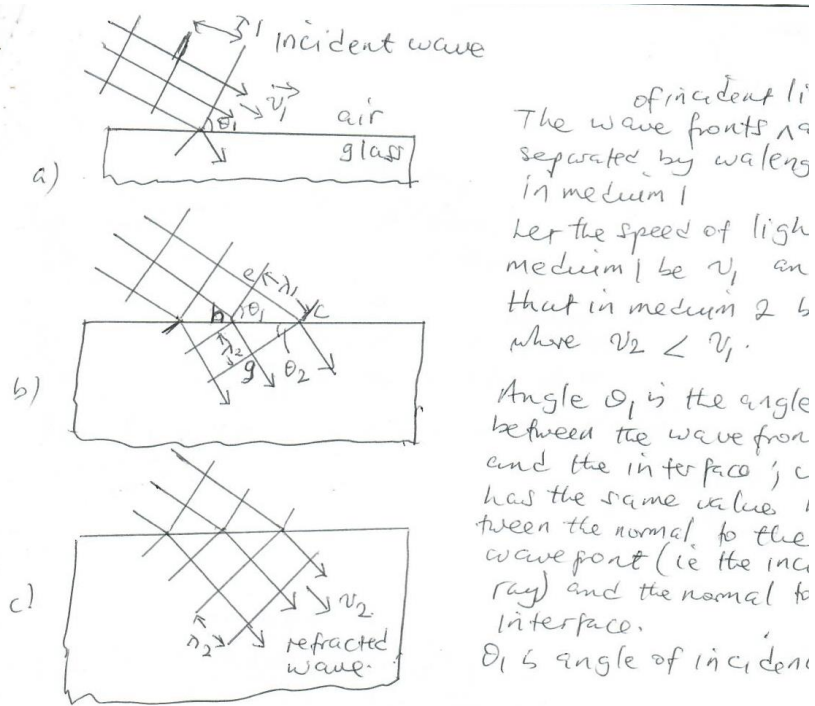 λ1 incident wave
v1
θ1
air
glass
a)
e
λ1
θ1
h
c
λ2
g
θ2
b)
v2
λ2
refracted
wave.
c)
of incident li
The wave fronts ^ a
separated by waleng
in medium 1
Let the speed of ligh
medium 1 be v1 an
that in medium 2 b
where v2 < v1.
Angle θ1 is the angle
between the wave fron
and the interface; 
has the same value
tween the normal to the
wavefront (ie the inci
ray) and the normal to
interface.
θ1 is angle of inciden